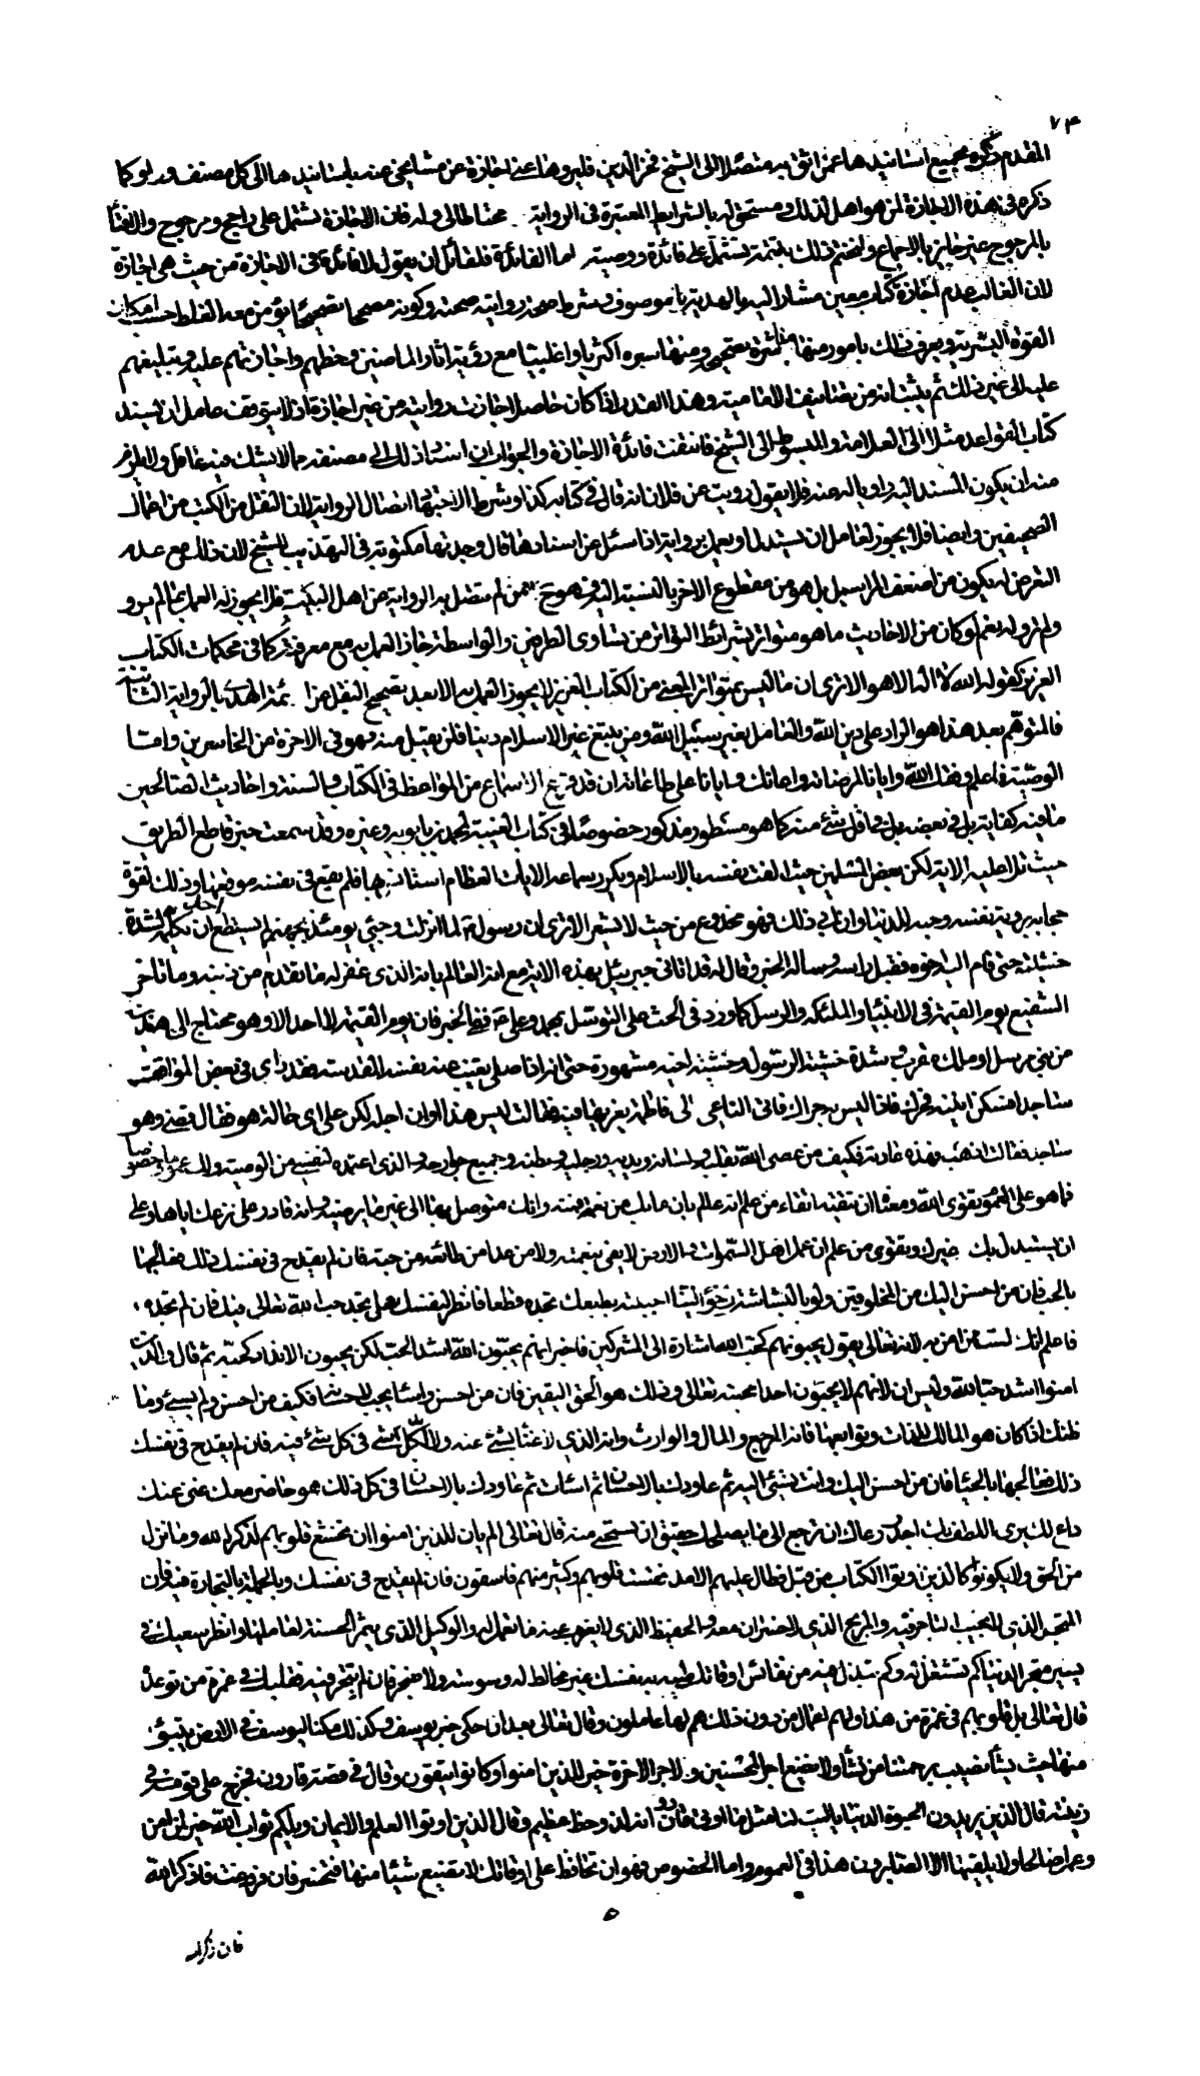 ٧٤
المقدم ذكره بجميع اسانيدها عمن اثق به متصلا الى الشيخ فخر الدين فليروها عنى اجازة عن مشايخى عنه باسانيدها الى كل مصنف ورد لو كما
ذكره فى هذه الاجازة لمن هو اهل لذلك ومستحق له بالشرايط المعتبرة فى الرواية محتاطا لى وله فان الاجازة تشتمل على راجح ومرجوح والافتاء
بالمرجوح غير جايز بالاجماع ولنختم ذلك بتتمة تشتمل على فائدة ووصية اما الفائدة فلقائل ان يقول لا فائدة فى الاجازة من حيث هى اجازة
لان الغالب عدم اجازة كتاب معين مشار اليه بالهدية بل موصوف بشرط صحة روايته صحته وكونه مصححا تصحيحا يؤمن معه الغلط حسب امكان
القوة البشرية ويعرف ذلك بامور منها مباشرة تصحيحه ومنها سبره اكثريا او اغلبيا مع رؤية اثار الماضين وخطهم واجازتهم عليه وتبليغهم
عليه الى غير ذلك ثم يثبت انه من تصانيف الامامية وهذا القدر اذا كان حاصلا جازت روايته من غير اجازة اذ لا يتوقف عامل ان يسند
كتاب القواعد مثلا الى العلامة والمبسوط الى الشيخ فانتفت فائدة الاجازة والجواب ان اسناد ذلك الى مصنفه مما لا يشك فيه عاقل ولا يلزم
منه ان يكون المسند اليه راويا له عنه فلا يقول رويت عن فلان انه قال فى كتابه كذا وشرط الاجتهاد اتصال الرواية لان النقل من الكتب من اعمال
الصحفيين وايضا فلا يجوز لعامل ان يستدل او يعمل برواية اذا سئل عن اسنادها قال وجدتها مكتوبة فى التهذيب للشيخ لان ذلك مع عدم
التعرض له يكون من اضعف المراسيل بل هو من مقطوع الاخر بالنسبة اليه فهو ممن لم يتصل به الرواية عن اهل البيت فلا يجوز له العمل بما لم يرو
ولم يرو له نعم لو كان من الاحاديث ما هو متواتر بشرائط التواتر من تساوى الطرفين والواسطة جاز العمل به مع معرفته كما فى محكمات الكتاب
العزيز كقوله الله لا اله الا هو الا ترى ان ما ليس بمتواتر المعنى من الكتاب العزيز لا يجوز العمل به الا بعد تصحيح النقل عن ائمة الهدى بالرواية الثابتة
فالمتوهم بعد هذا هو الراد على دين الله والعامل بغير سبيل الله ومن يبتغ غير الاسلام دينا فلن يقبل منه وهو فى الاخرة من الخاسرين واما
الوصية فاعلم وفقك الله وايانا لمرضاته واعانك وايانا على طاعاته ان قد قرع الاسماع من المواعظ فى الكتاب والسنة واحاديث الصالحين
ما فيه كفاية بل فى بعضه بل فى اقل شئ منه كما هو مسطور مذكور خصوصا فى كتاب الغيبة لمحمد بن بابويه وغيره وقد سمعت خبر قاطع الطريق
حيث تلا عليه الاية لكن بعض المسلمين حيث الفت نفسه بالاسلام وتكرر سماعه الايات العظام استانس بها فلم يقع فى نفسه موقعها وذلك لقوة
حجابه برؤية نفسه وحبه للدنيا وان ابى ذلك فهو مخدوع من حيث لا يشعر الا ترى ان رسول الله لما انزلت وجئ يومئذ بجهنم لم يستطع احد ان يكلمه لشدة
خشيته حتى قام اليه اخوه فقبل راسه وساله الخبر وقال له قد اتانى جبرئيل بهذه الاية مع انه العالم بانه الذى غفر له ما تقدم من ذنبه وما تاخر
الشفيع يوم القيمة فى الانبياء والملئكة والرسل كما ورد فى الحث على التوسل بمحمد وعلى ففى الخبر فان يوم القيمة لا احد الا وهو محتاج الى هذين
من نبى مرسل او ملك مقرب وشدة خشية الرسول وخشية اخيه مشهورة حتى انه اذا صلى يغيب عنه نفسه المقدسة فقد رأى فى بعض المواقف
ساجدا فسكن انينه فحركه فاذا ليس به حراك فاتى الناعى الى فاطمة يعزيها فيه فقالت ليس هذا اوان اجله لكن على اى حالة هو فقال بقصه وهو
ساجد فقالت اذهب فهذه عادته فكيف من عصى الله بقلبه ولسانه ويديه ورجليه وبطنه وجميع جوارحه والذى اعتمده لنفسى من الوصية ولك عموما وخصوصا
فما هو على العموم تقوى الله ومعناه ان تتقيه اتقاء من علم انه عالم بان ما بك من نعمة منه وانك متوصل بها الى غير ما يرضيه وانه قادر على نزعك اياها وعلى
ان يستبدل بك غيرك وتقوى من علم ان عمل اهل السموات والارض لا يفى بنعمة ولا من عداه من طائفة من حبه فان لم يقدح فى نفسك ذلك فعالجها
بالحب فان من احسن اليك من المخلوقين ولو بالبشاشة احببته بطبعك تجده قطعا فانظر لنفسك هل تجد حب الله تعالى فيك فان لم تجده
فاعلم انك لست ممن امن به لانه تعالى يقول يحبونهم كحب الله اشارة الى المشركين فاخبر انهم يحبون الله اشد الحب لكن يحبون الانداد كحبه ثم قال والذين
امنوا اشد حبا لله وليس ان لانهم لا يحبون احدا محبته تعالى وذلك هو الحق اليقين فان من احسن واساء يجب للحسنى فكيف من احسن ولم يسئ وما
ظنك اذا كان هو المالك للذات وتوابعها فانه المرجع والمال والوارث وانه الذى لا غناء لشئ عنه ولا لكل شئ فى كل شئ فيه فان لم يقدح فى نفسك
ذلك فعالجها بالحياء فان من احسن اليك وانت تسئ اليه ثم عاودك بالاحسان ثم اسات ثم عاودك بالاحسان فى كل ذلك هو حاضر معك غنى عنك
داع لك يرى اللطف بك اجل رعاك ان ترجع الى ما يصلحك لحقيق ان تستحى منه قال تعالى الم يان للذين امنوا ان تخشع قلوبهم لذكر الله وما نزل
من الحق ولا يكونوا كالذين اوتوا الكتاب من قبل فطال عليهم الامد فقست قلوبهم وكثير منهم فاسقون فان لم يقدح فى نفسك وبالجملة بالتجارة فيه فان
المتجر الذى لا يخيب تاجر فيه والربح الذى لا خسران معه والحفيظ الذى لا يغرب عنه ما تعمل له والوكيل الذى يثمر الحسنة لعاملها وانظر سعيك فى
يسير متجر الدنيا كم تشتغل له وكم تبذل فيه من نفائس اوقاتك طيبة به نفسك غير مخالط له وسوسة ولا ضجر فان لم يتجر فيه فقلبك فى غمرة من توعد
قال تعالى بل قلوبهم فى غمرة من هذا ولهم اعمال من دون ذلك هم لها عاملون وقال تعالى بعد ان حكى خبر يوسف وكذلك مكنا ليوسف فى الارض يتبوؤ
منها حيث يشاء نصيب برحمتنا من نشاء ولا نضيع اجر المحسنين ولاجر الاخرة خير للذين امنوا وكانوا يتقون وقال فى قصة قارون فخرج على قومه فى
زينته قال الذين يريدون الحيوة الدنيا يا ليت لنا مثل ما اوتى قارون انه لذو حظ عظيم وقال الذين اوتوا العلم والايمان ويلكم ثواب الله خير لمن امن
وعمل صالحا ولا يلقيها الا الصابرون هذا فى العموم واما الخصوص فهو ان تحافظ على اوقاتك لا تضيع شيئا منها فتخسر فان فرغت فاذكر الله
فان ذكر الله